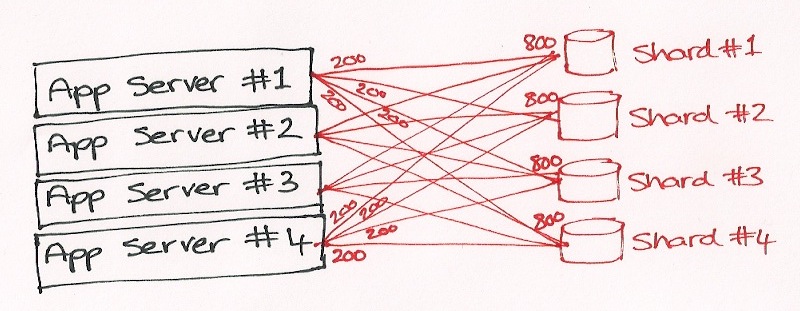 App Server #1
App Server #2
App Server #3
App Server #4
200
200
200
200
200
200
200
200
800
800
800
800
Shard #1
Shard #2
Shard #3
Shard #4